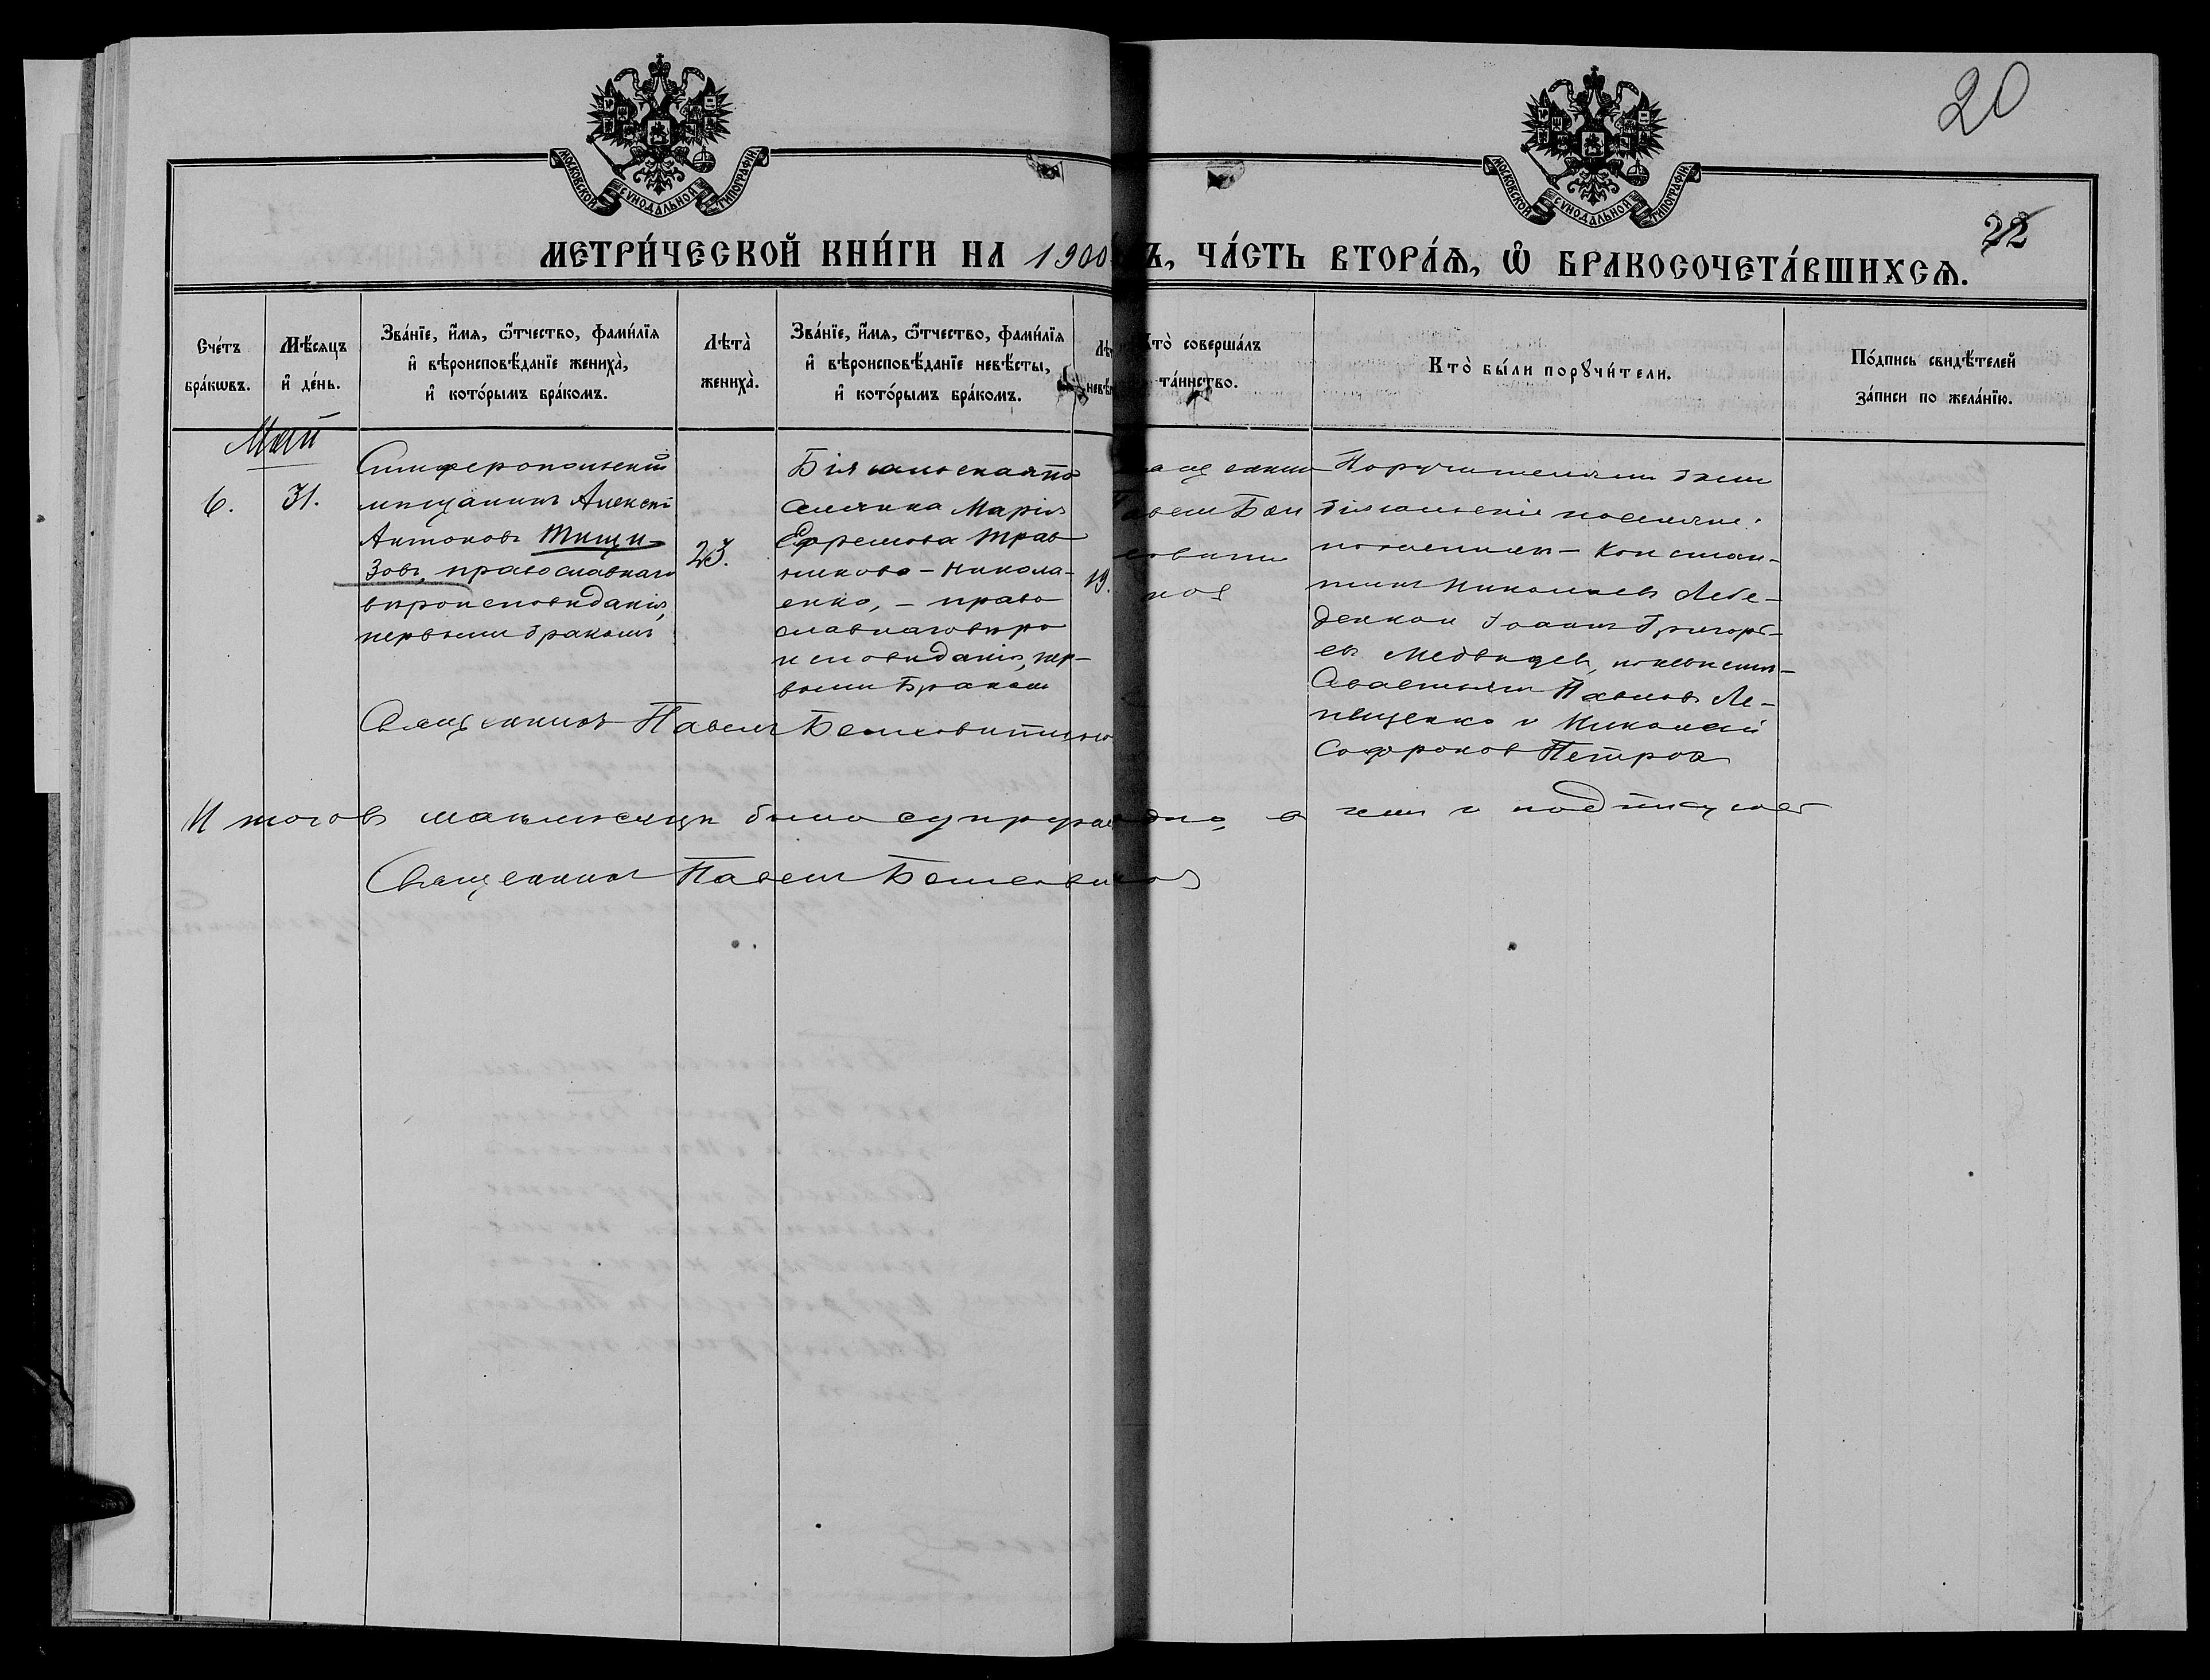 20
22
МОСКОВСКОЙ СѴНОДАЛЬНОЙ ТИПОГРАФІИ
МОСКОВСКОЙ СѴНОДАЛЬНОЙ ТИПОГРАФІИ
МЕТРИ́ЧЕСКОЙ КНИ́ГИ НА 1900 Ъ, ЧА́СТЬ ВТОРА́Ѧ, Ѽ БРАКОСОЧЕТА́ВШИХСѦ.
Сче́тъ
бра́кѡвъ.
Мѣ́сяцъ
и҆ де́нь.
Зва́нїе, и҆́мя, ѻ҆́тчество, фами́лїя
и҆ вѣроисповѣ́данїе жениха̀,
и҆ кото́рымъ бра́комъ.
Лѣта̀
жениха̀.
Зва́нїе, и҆́мя, ѻ҆́тчество, фами́лїя
и҆ вѣроисповѣ́данїе невѣ́сты,
и҆ кото́рымъ бра́комъ.
Лѣ
невѣ
Кто̀ соверша́лъ
та́инство.
Кто̀ бы́ли порꙋчи́тели.
По́дпись свидѣ́телей
за́писи по жела́нїю.
Май
6.
31.
Симферопольскій
мѣщанинъ Алексѣй
Антоновъ Тищи-
зовъ, православнаго
вѣроисповѣданія,
первымъ бракомъ
23.
Біяпоселянка Марія
Ефремова Трав
никова - Никола-
енко, - право
славнаго вѣро
исповѣданія, пер-
вымъ бракомъ
19.
Поручителями были
поселяне:
по жениху - Констан-
тинъ Николаевъ Лебе-
денко и Іоаннъ Григорь-
евъ Медведевъ, по невѣстѣ -
Павловъ Ле-
пещенко и Николай
Софроновъ Петровъ
Священникъ Павелъ
Итого въ маѣ мѣсяцѣ было одно, въ чемъ и подписуюсь
Священникъ Павелъ